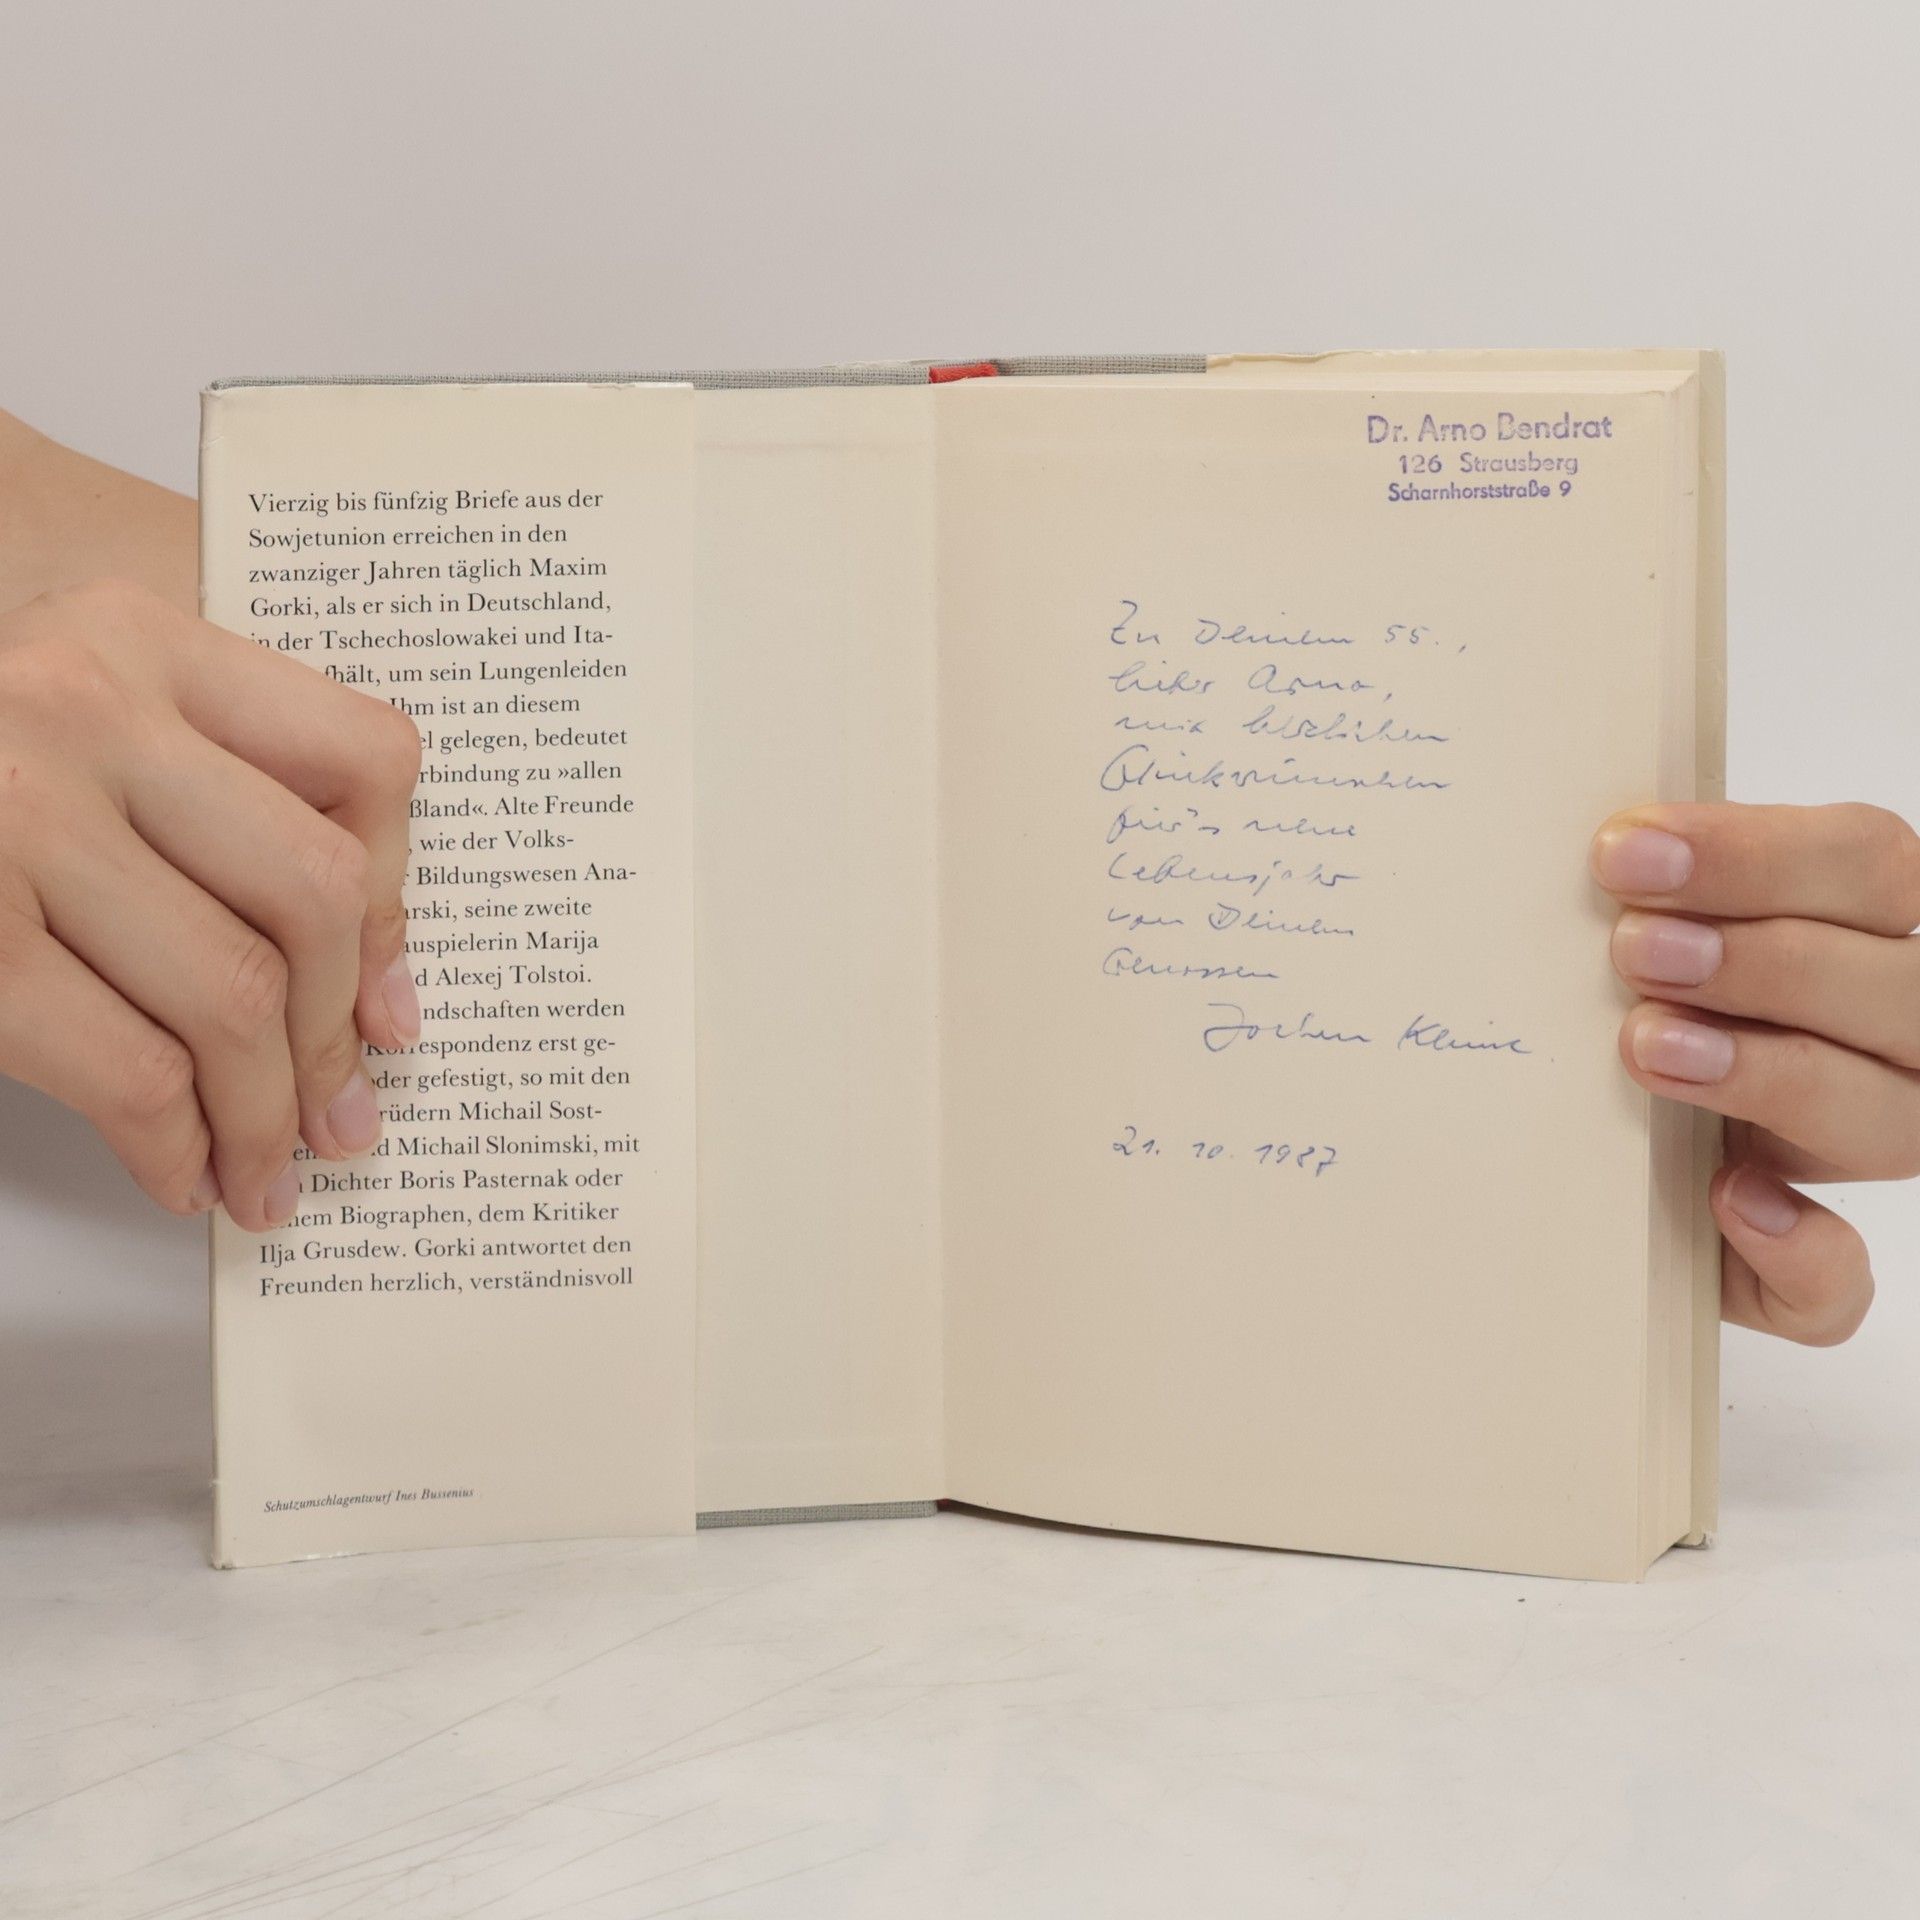 Vierzig bis fünfzig Briefe aus der
Sowjetunion erreichen in den
zwanziger Jahren täglich Maxim
Gorki, als er sich in Deutschland,
in der Tschechoslowakei und Ita-
fhält, um sein Lungenleiden
Ihm ist an diesem
el gelegen, bedeutet
rbindung zu »allen
ßland«. Alte Freunde
, wie der Volks-
r Bildungswesen Ana-
arski, seine zweite
auspielerin Marija
d Alexej Tolstoi.
ndschaften werden
Korrespondenz erst ge-
oder gefestigt, so mit den
rüdern Michail Sost-
en d Michail Slonimski, mit
Dichter Boris Pasternak oder
nem Biographen, dem Kritiker
Ilja Grusdew. Gorki antwortet den
Freunden herzlich, verständnisvoll
Schutzumschlagentwurf Ines Bussenius
Dr. Arno Bendrat
126 Strausberg
Scharnhorststraße 9
Zu Deinem 55.,
lieber Arno,
mit herzlichen
Glückwünschen
für's neue
Lebensjahr
von Deinem
Genossen
Jochen
21. 10. 1987